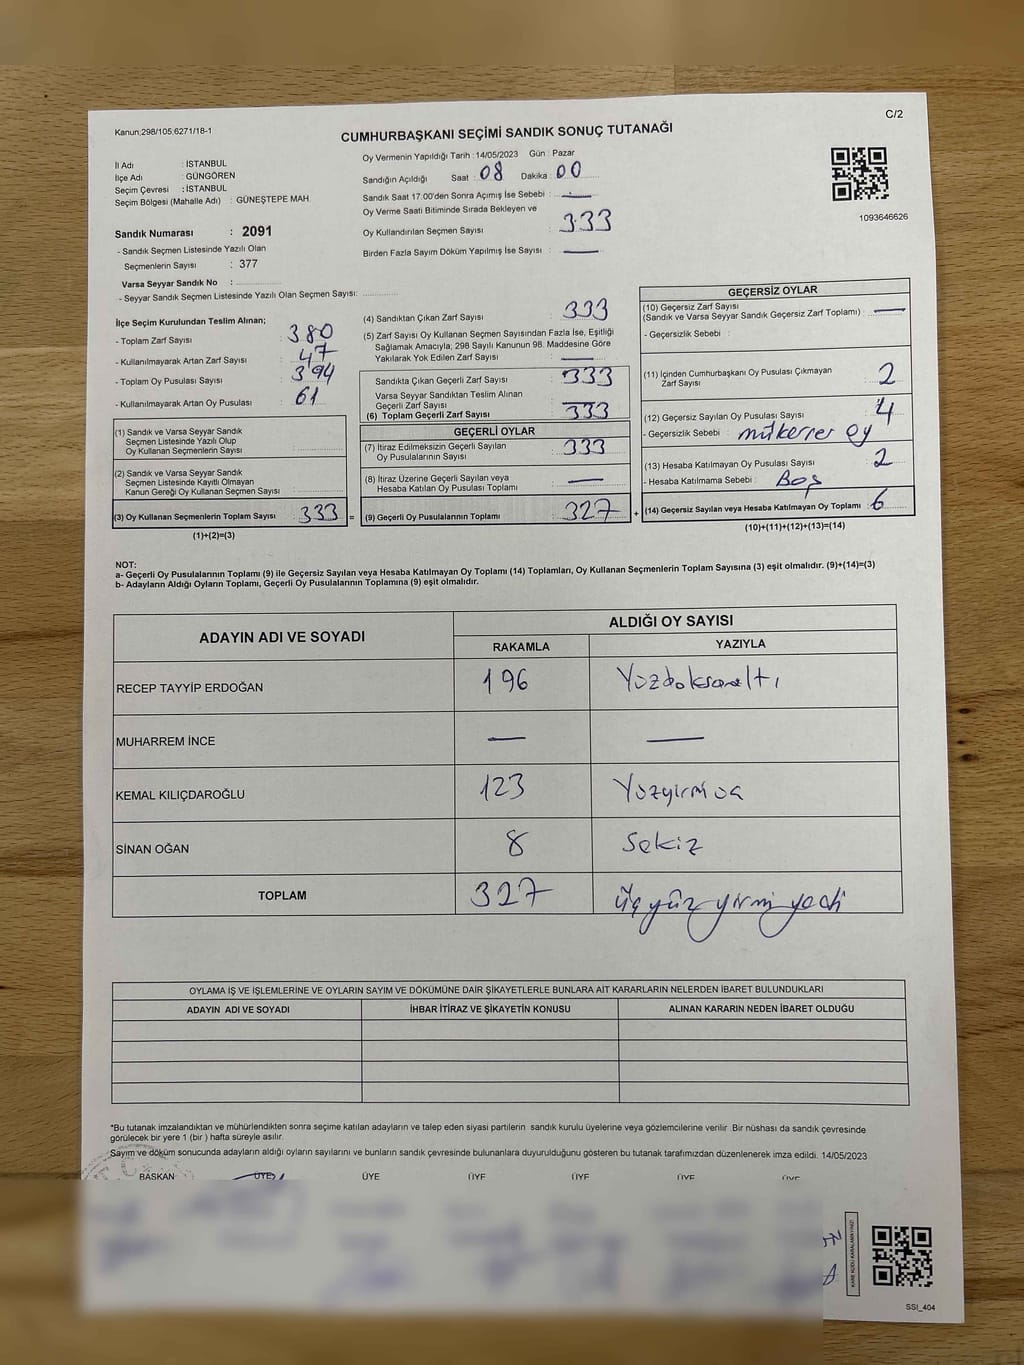 Kanun:298/105;6271/18-1
C/2
CUMHURBAŞKANI SEÇİMİ SANDIK SONUÇ TUTANAĞI
İl Adı : İSTANBUL
İlçe Adı : GÜNGÖREN
Seçim Çevresi : İSTANBUL
Seçim Bölgesi (Mahalle Adı) : GÜNEŞTEPE MAH.
Sandık Numarası : 2091
- Sandık Seçmen Listesinde Yazılı Olan
Seçmenlerin Sayısı : 377
Varsa Seyyar Sandık No :
- Seyyar Sandık Seçmen Listesinde Yazılı Olan Seçmen Sayısı:
Oy Vermenin Yapıldığı Tarih : 14/05/2023 Gün : Pazar
Sandığın Açıldığı Saat : 08 Dakika : 00
Sandık Saat 17:00'den Sonra Açımış İse Sebebi : —
Oy Verme Saati Bitiminde Sırada Bekleyen ve
Oy Kullandırılan Seçmen Sayısı : 333
Birden Fazla Sayım Döküm Yapılmış İse Sayısı : —
1093646626
İlçe Seçim Kurulundan Teslim Alınan;
- Toplam Zarf Sayısı : 380
- Kullanılmayarak Artan Zarf Sayısı : 47
- Toplam Oy Pusulası Sayısı : 394
- Kullanılmayarak Artan Oy Pusulası : 61
(1) Sandık ve Varsa Seyyar Sandık
Seçmen Listesinde Yazılı Olup
Oy Kullanan Seçmenlerin Sayısı :
(2) Sandık ve Varsa Seyyar Sandık
Seçmen Listesinde Kayıtlı Olmayan
Kanun Gereği Oy Kullanan Seçmen Sayısı :
(3) Oy Kullanan Seçmenlerin Toplam Sayısı : 333 =
(1)+(2)=(3)
(4) Sandıktan Çıkan Zarf Sayısı : 333
(5) Zarf Sayısı Oy Kullanan Seçmen Sayısından Fazla İse, Eşitliği
Sağlamak Amacıyla; 298 Sayılı Kanunun 98. Maddesine Göre
Yakılarak Yok Edilen Zarf Sayısı : —
Sandıkta Çıkan Geçerli Zarf Sayısı : 333
Varsa Seyyar Sandıktan Teslim Alınan
Geçerli Zarf Sayısı :
(6) Toplam Geçerli Zarf Sayısı : 333
GEÇERLİ OYLAR
(7) İtiraz Edilmeksizin Geçerli Sayılan
Oy Pusulalarının Sayısı : 333
(8) İtiraz Üzerine Geçerli Sayılan veya
Hesaba Katılan Oy Pusulası Toplamı : —
(9) Geçerli Oy Pusulalarının Toplamı : 327 +
GEÇERSİZ OYLAR
(10) Geçersiz Zarf Sayısı
(Sandık ve Varsa Seyyar Sandık Geçersiz Zarf Toplamı) : —
- Geçersizlik Sebebi :
(11) İçinden Cumhurbaşkanı Oy Pusulası Çıkmayan
Zarf Sayısı : 2
(12) Geçersiz Sayılan Oy Pusulası Sayısı : 4
- Geçersizlik Sebebi : mükerrer oy
(13) Hesaba Katılmayan Oy Pusulası Sayısı : 2
- Hesaba Katılmama Sebebi : Boş
(14) Geçersiz Sayılan veya Hesaba Katılmayan Oy Toplamı : 6
(10)+(11)+(12)+(13)=(14)
NOT:
a- Geçerli Oy Pusulalarının Toplamı (9) ile Geçersiz Sayılan veya Hesaba Katılmayan Oy Toplamı (14) Toplamları, Oy Kullanan Seçmenlerin Toplam Sayısına (3) eşit olmalıdır. (9)+(14)=(3)
b- Adayların Aldığı Oyların Toplamı, Geçerli Oy Pusulalarının Toplamına (9) eşit olmalıdır.
ADAYIN ADI VE SOYADI
ALDIĞI OY SAYISI
RAKAMLA YAZIYLA
RECEP TAYYİP ERDOĞAN 196 Yüzdoksanaltı
MUHARREM İNCE — —
KEMAL KILIÇDAROĞLU 123 Yüzyirmiüç
SİNAN OĞAN 8 Sekiz
TOPLAM 327 üçyüz yirmi yedi
OYLAMA İŞ VE İŞLEMLERİNE VE OYLARIN SAYIM VE DÖKÜMÜNE DAİR ŞİKAYETLERLE BUNLARA AİT KARARLARIN NELERDEN İBARET BULUNDUKLARI
ADAYIN ADI VE SOYADI İHBAR İTİRAZ VE ŞİKAYETİN KONUSU ALINAN KARARIN NEDEN İBARET OLDUĞU
*Bu tutanak imzalandıktan ve mühürlendikten sonra seçime katılan adayların ve talep eden siyasi partilerin sandık kurulu üyelerine veya gözlemcilerine verilir. Bir nüshası da sandık çevresinde
görülecek bir yere 1 (bir ) hafta süreyle asılır.
Sayım ve döküm sonucunda adayların aldığı oyların sayılarını ve bunların sandık çevresinde bulunanlara duyurulduğunu gösteren bu tutanak tarafımızdan düzenlenerek imza edildi. 14/05/2023
BAŞKAN ÜYE ÜYE ÜYE ÜYE ÜYE ÜYE
KARE KODU KARALAMAYINIZ!
SSI_404